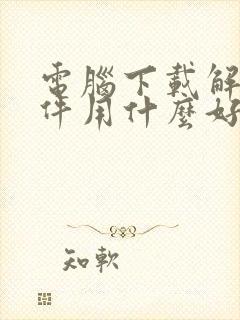 電腦下載解
件用什麼好
知軟